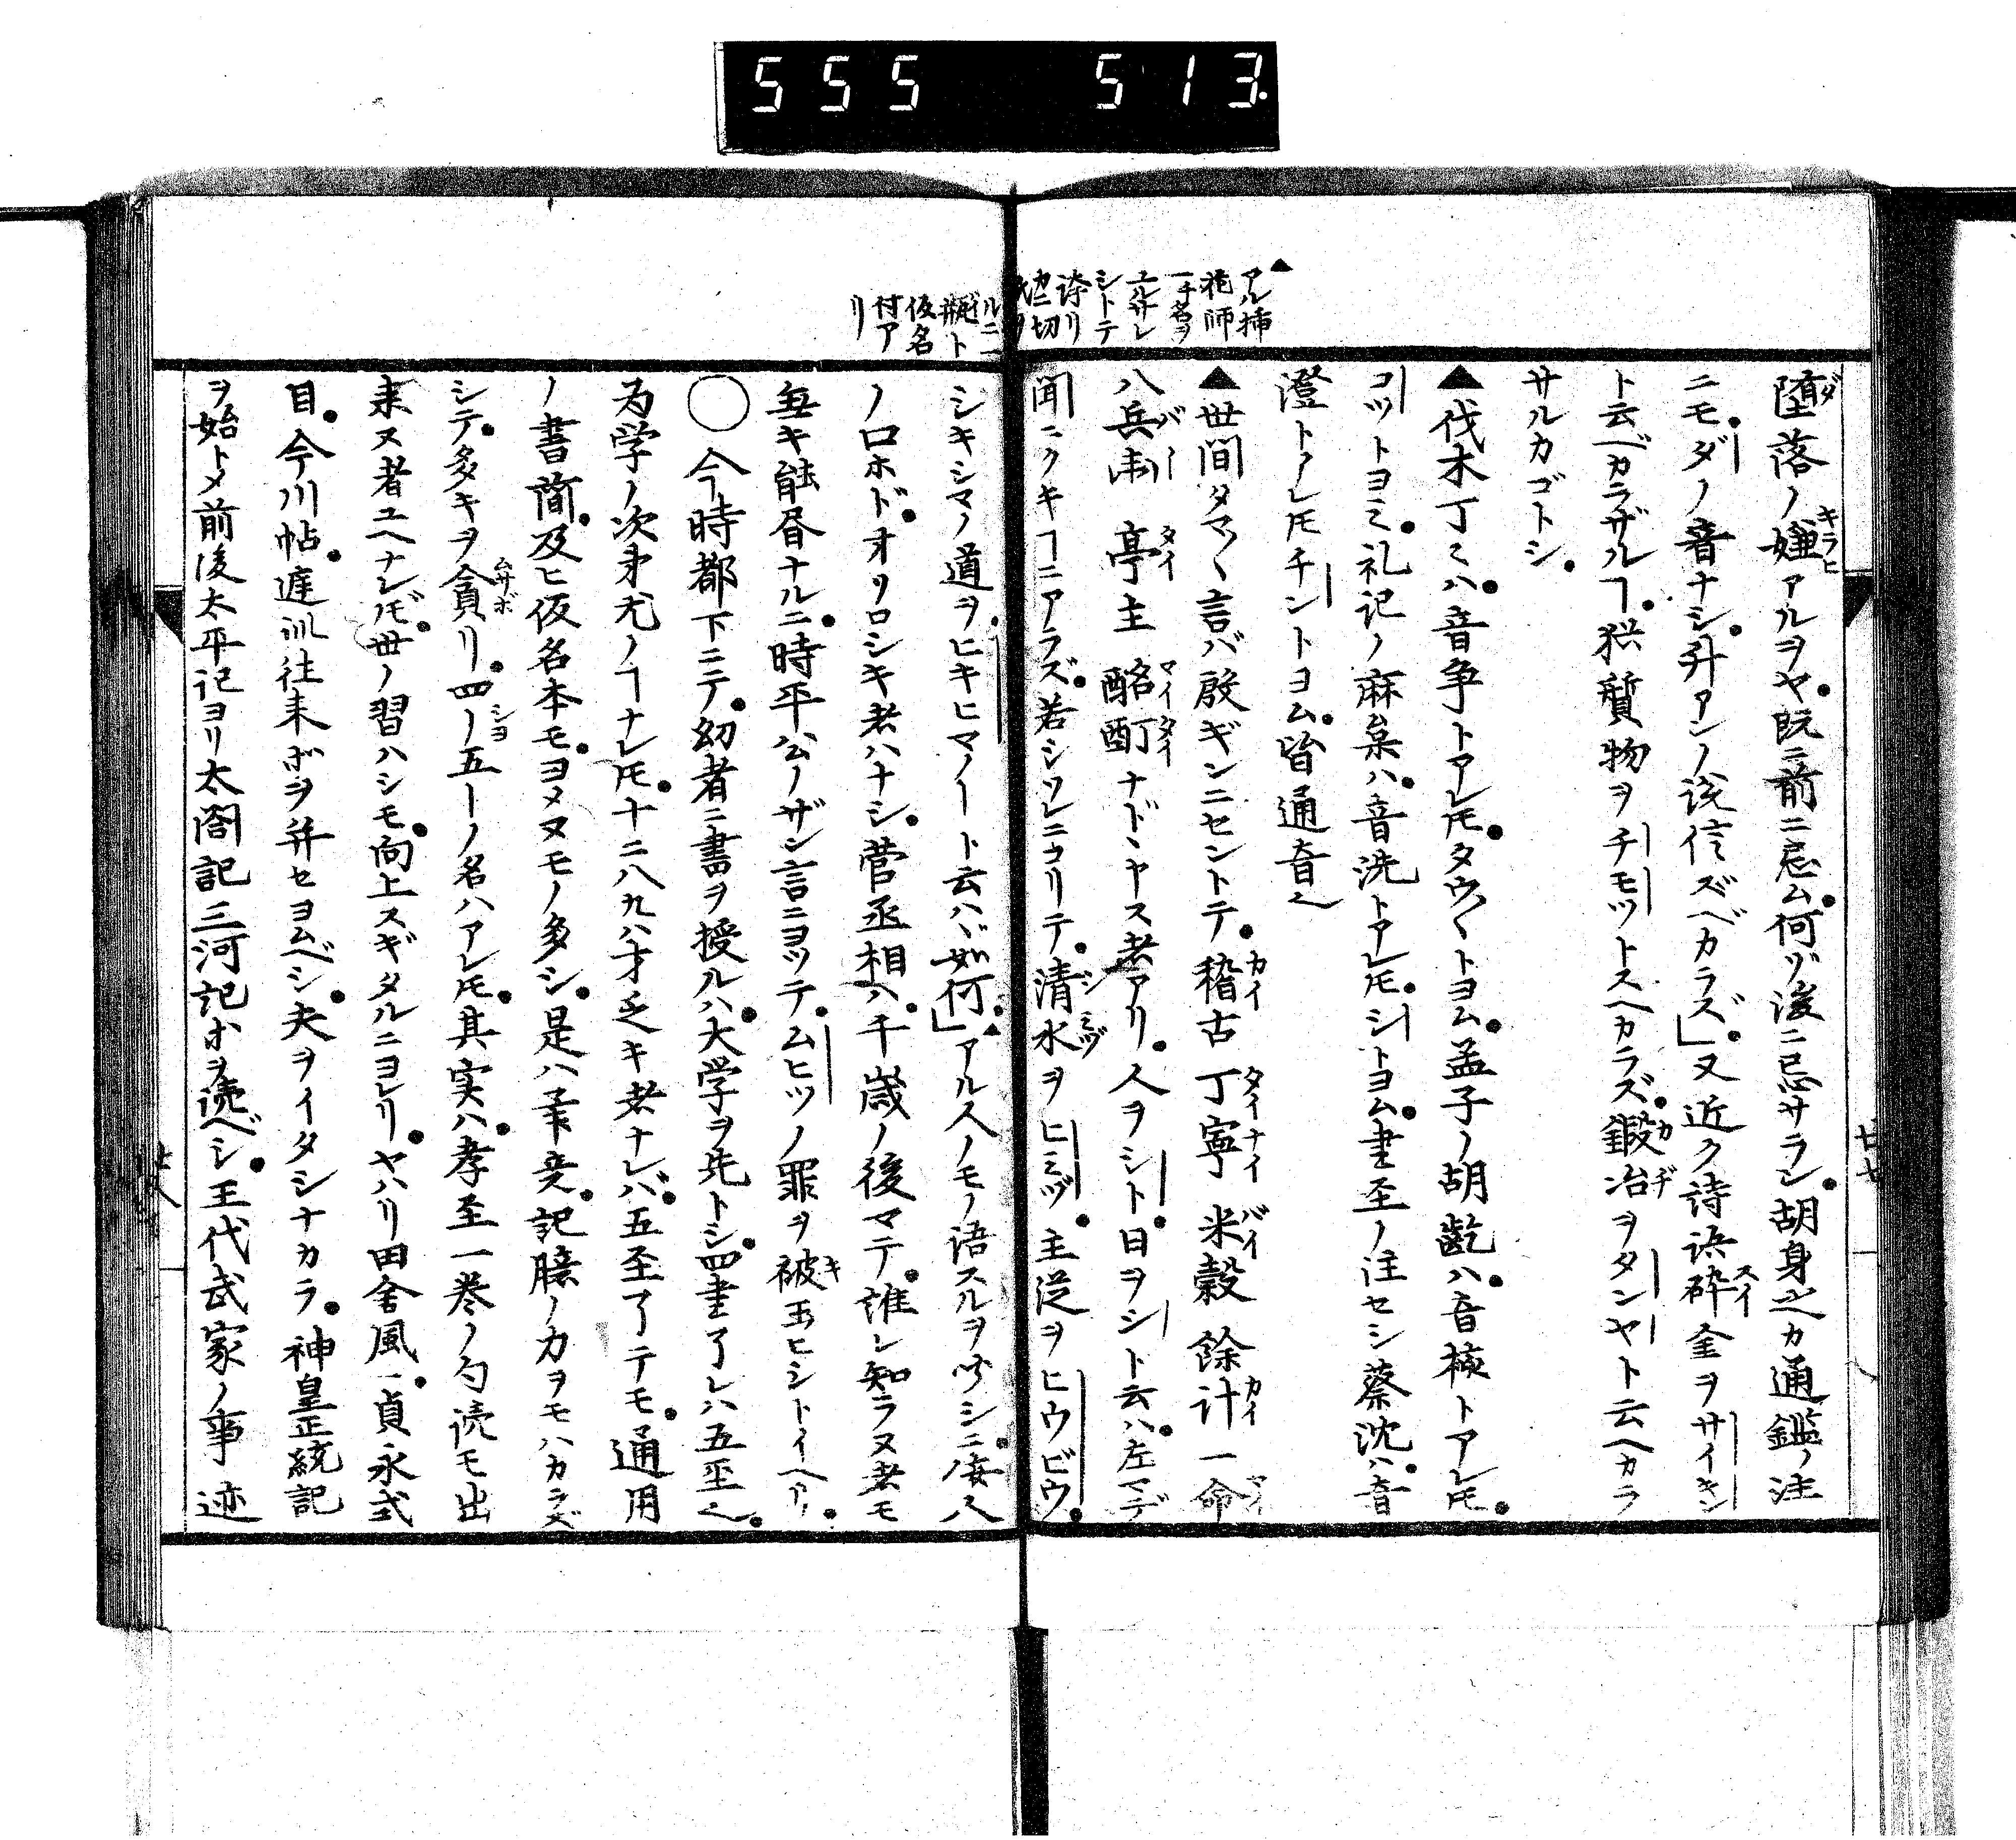 555 513.
▲アル挿
花師
一チ名ヲ
ユルサレ
シトテ
誇リ
カニ切
堕落ノ嫌アルヲヤ。既ニ前ニ忌ム。何ゾ後ニ忌サラン。胡身之カ通鑑ノ注
ニモ。ダノ音ナシ。升アンノ説信ズベカラズ」又近ク詩語砕金ヲサイキン
ト云ベカラザルヿ。猶質物ヲチモツトスヘカラズ。鍛冶ヲタンヤト云ヘカラ
サルカゴトシ。
▲伐木丁〻ハ。音争トアレ𪜈。タウ〱トヨム。孟子ノ胡齕ハ。音核トアレ𪜈。
コツトヨミ。礼記ノ麻枲ハ。音洗トアレ𪜈。シトヨム。書至ノ注セシ蔡沈ハ。音
澄トアレ𪜈チントヨム。皆通音也
▲世間タマ〱言バ慇ギンニセントテ。稽古 丁寧 米穀 餘計 一命
八兵衛 亭主 酩酊ナド、ヤス者アリ。人ヲシト。日ヲシト云ハ。左マデ
聞ニクキヿニアラズ。若シソレニコリテ。清水ヲヒミヅ。主従ヲヒウビウ。
ルニ
瓶ト
仮名
付ア
リ
シキシマノ道ヲヒキヒマノート云ハヾ如何。」▲アルスノモノ語スルヲ
ノ口ホド。オソロシキ者ハナシ。菅丞相ハ。千歳ノ後マテ。誰レ知ラヌ者モ
無キ能昼ナルニ。時平公ノザン言ニヨツテ。ムヒツノ罪ヲ被玉ヒシトイヘリ。
○今時都下ニテ。幼者ニ書ヲ授ルハ。大学ヲ先トシ。四書了レハ五巠也。
為学ノ次第尤ノヿナレ𪜈。十ニ八九ハ才乏キ者ナレバ。五巠了テモ。通用
ノ書簡。及ヒ仮名本モ。ヨメヌモノ多シ。是ハ記臆ノ力ヲモハカラズ
シテ。多キヲ貪リ。四ー五ーノ名ハアレ𪜈。其実ハ。孝巠一巻ノ句読モ出
来ヌ者ユヘナレ𪜈。世ノ習ハシモ。向上スギタルニヨレリ。ヤハリ田舎風ニ。貞永式
目。今川帖。庭訓往来ホヲ并セヨムベシ。夫ヲイタシナカラ。神皇正統記
ヲ始トメ前後太平記ヨリ太閤記三河記ホヲ読ベシ。王代武家ノ事迹